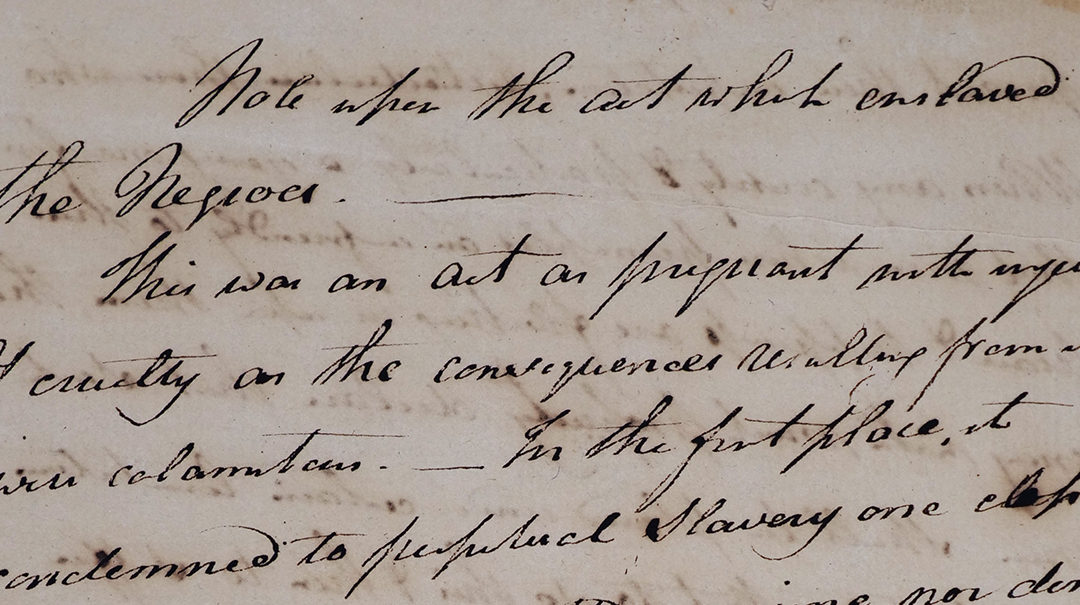 Note upon the act which enslaved
the Negroes. —
This was an act as pregnant with
cruelty as the consequences resulting from
calamitous. — In the first place, it
condemned to perpetual slavery one
nor